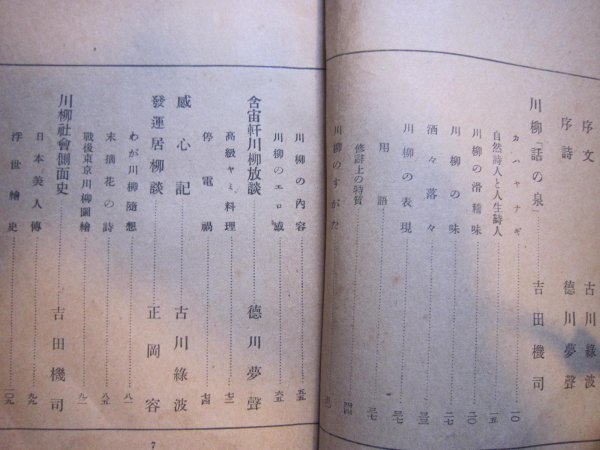 序文 古川綠波
序詩 德川夢聲
川柳「話の泉」 吉田機司
カハヤナギ 一〇
自然詩人と人生詩人 一五
川柳の滑稽味 二〇
川柳の味 二七
洒々落々 三三
川柳の表現 三七
用語 三七
修辭上の特質 四四
川柳のすがた
川柳の內容 五五
川柳のエロ感 六五
含宙軒川柳放談 德川夢聲
高級ヤミ料理 七二
停電禍 七四
感心記 古川綠波
發運居柳談 正岡容
わが川柳隨想 八一
末摘花の詩 八五
戰後東京川柳圖繪 九二
川柳社會側面史 吉田機司
日本美人傳 九九
浮世繪史 一〇九
7